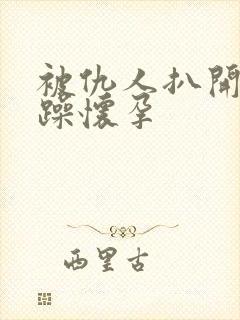 被仇人扒開
躁懷孕
西里古